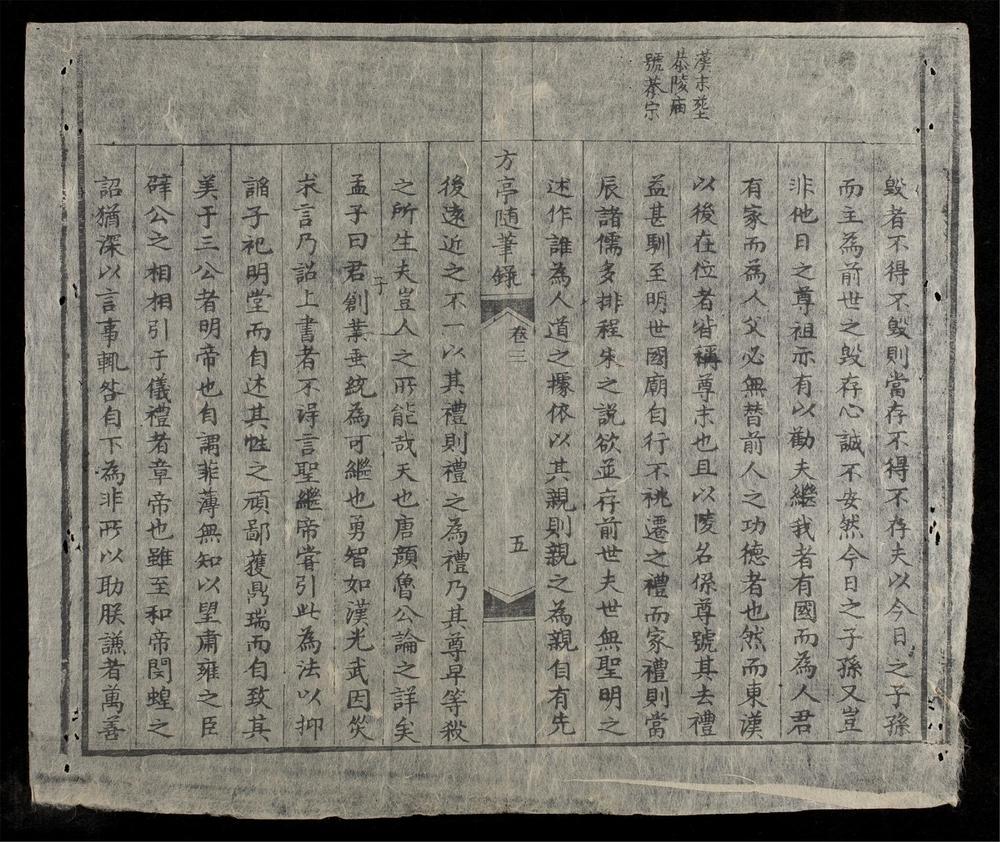 漢末塟
恭陵庙
號恭宗
毀者不得不毀則當存不得不存夫以今日之子孫
而主為前世之毀存心誠不安然今日之子孫又豈
非他日之尊祖亦有以勸夫繼我者有國而為人君
有家而為人父必無替前人之功德者也然而東漢
以後在位者皆稱尊末也且以陵名係尊號其去禮
益甚馴至明世國廟自行不祧遷之禮而家禮則當
辰諸儒多排程朱之説欲並存前世夫世無聖明之
述作誰為人道之據依以其親則親之為親自有先
方亭随筆錄
卷三
五
後遠近之不一以其禮則禮之為禮乃其尊卑等殺
之所生夫豈人之所能哉天也唐顔魯公論之詳矣
孟子曰君子創業垂統為可繼也勇智如漢光武因災
求言乃詔上書者不得言聖繼帝嘗引此為法以抑
諂子祀明堂而自述其性之頑鄙獲鼎瑞而自致其
美于三公者明帝也自謂菲薄無知以望肅雍之臣
辟公之相相引于儀禮者章帝也雖至和帝閔蝗之
詔猶深以言事輒咎自下為非所以助朕謙者萬善